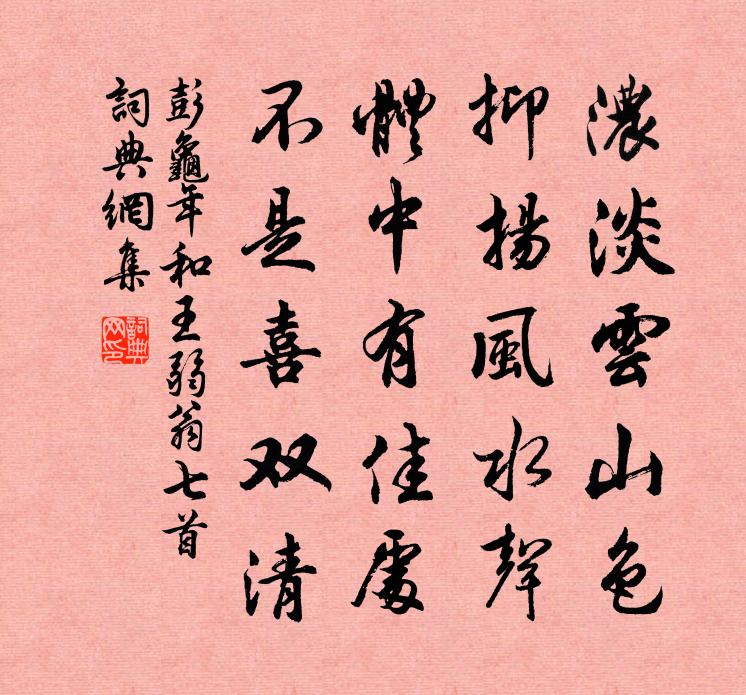 濃淡雲山色
抑揚風水聲
體中有佳處
不是喜双清
彭龜年和王弱翁七首
詞典網集
詞典网印